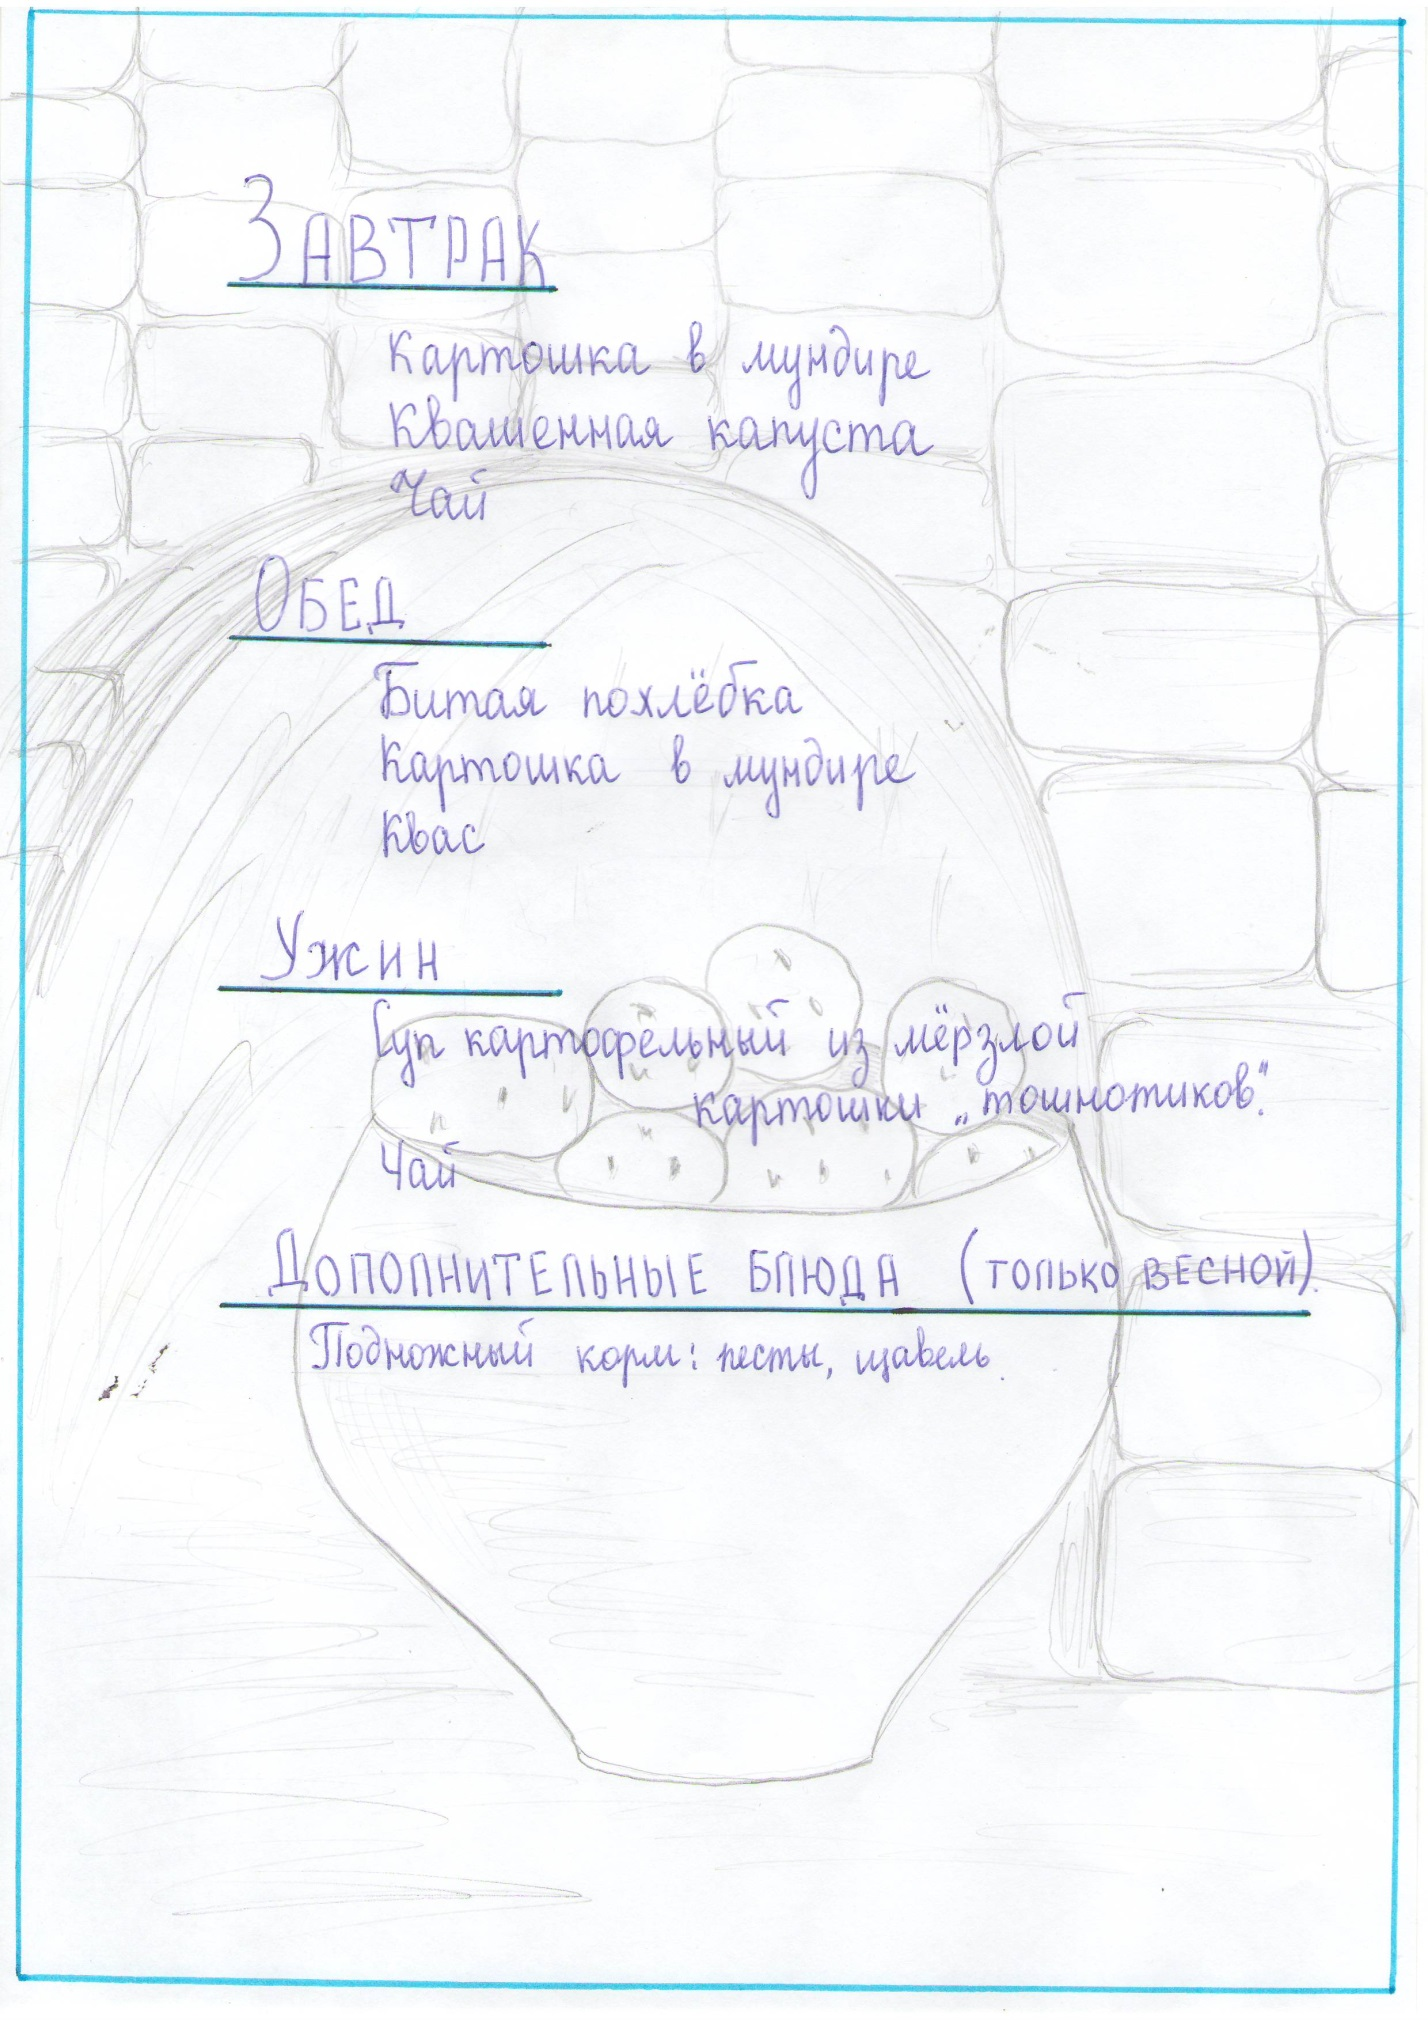 ЗАВТРАК
Картошка в мундире
Квашенная капуста
Чай
ОБЕД
Битая похлёбка
Картошка в мундире
Квас
УЖИН
Суп картофельный из мёрзлой
картошки „тошнотиков".
Чай
ДОПОЛНИТЕЛЬНЫЕ БЛЮДА (ТОЛЬКО ВЕСНОЙ).
Подножный корм: песты, щавель.